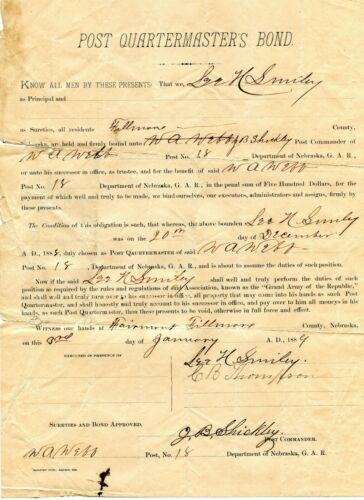 POST QUARTERMASTER'S BOND.
KNOW ALL MEN BY THESE PRESENTS: That we, Geo H Smiley
as Principal and
as Sureties, all residents Fillmore County,
are held and firmly bound unto W A Webb J B Shickley Post Commander of
W A Webb Post No. 18, Department of Nebraska, G. A. R.,
or unto his successor in office, as trustee, and for the benefit of said W A Webb
Post No. 18 Department of Nebraska, G. A. R., in the penal sum of Five Hundred Dollars, for the
payment of which well and truly to be made, we bind ourselves, our executors, administrators and assigns, firmly by
these presents.
The Condition of this obligation is such, that whereas, the above bounden Geo H Smiley
was on the 20th day of December
A. D., 188 , duly chosen as POST QUARTERMASTER of said W A Webb
Post No. 18, Department of Nebraska, G. A. R., and is about to assume the duties of such position.
Now if the said Geo H Smiley shall well and truly perform the duties of such
position as required by the rules and regulations of said Association, known as the "Grand Army of the Republic,"
and shall well and truly turn over to his successor in office, all property that may come into his hands as such Post
Quartermaster, and shall honestly and truly account to his successor in office, and pay over to him all moneys in his
hands, as such Post Quartermaster, then these presents to be void, otherwise in full force and effect.
WITNESS our hands at Fairmont Fillmore County, Nebraska,
on this 3rd day of January A. D., 1889
EXECUTED IN PRESENCE OF
Geo H Smiley.
C B Thompson
SURETIES AND BOND APPROVED.
J. B. Shickley.
POST COMMANDER.
W A Webb Post, No. 18 Department of Nebraska, G. A. R.